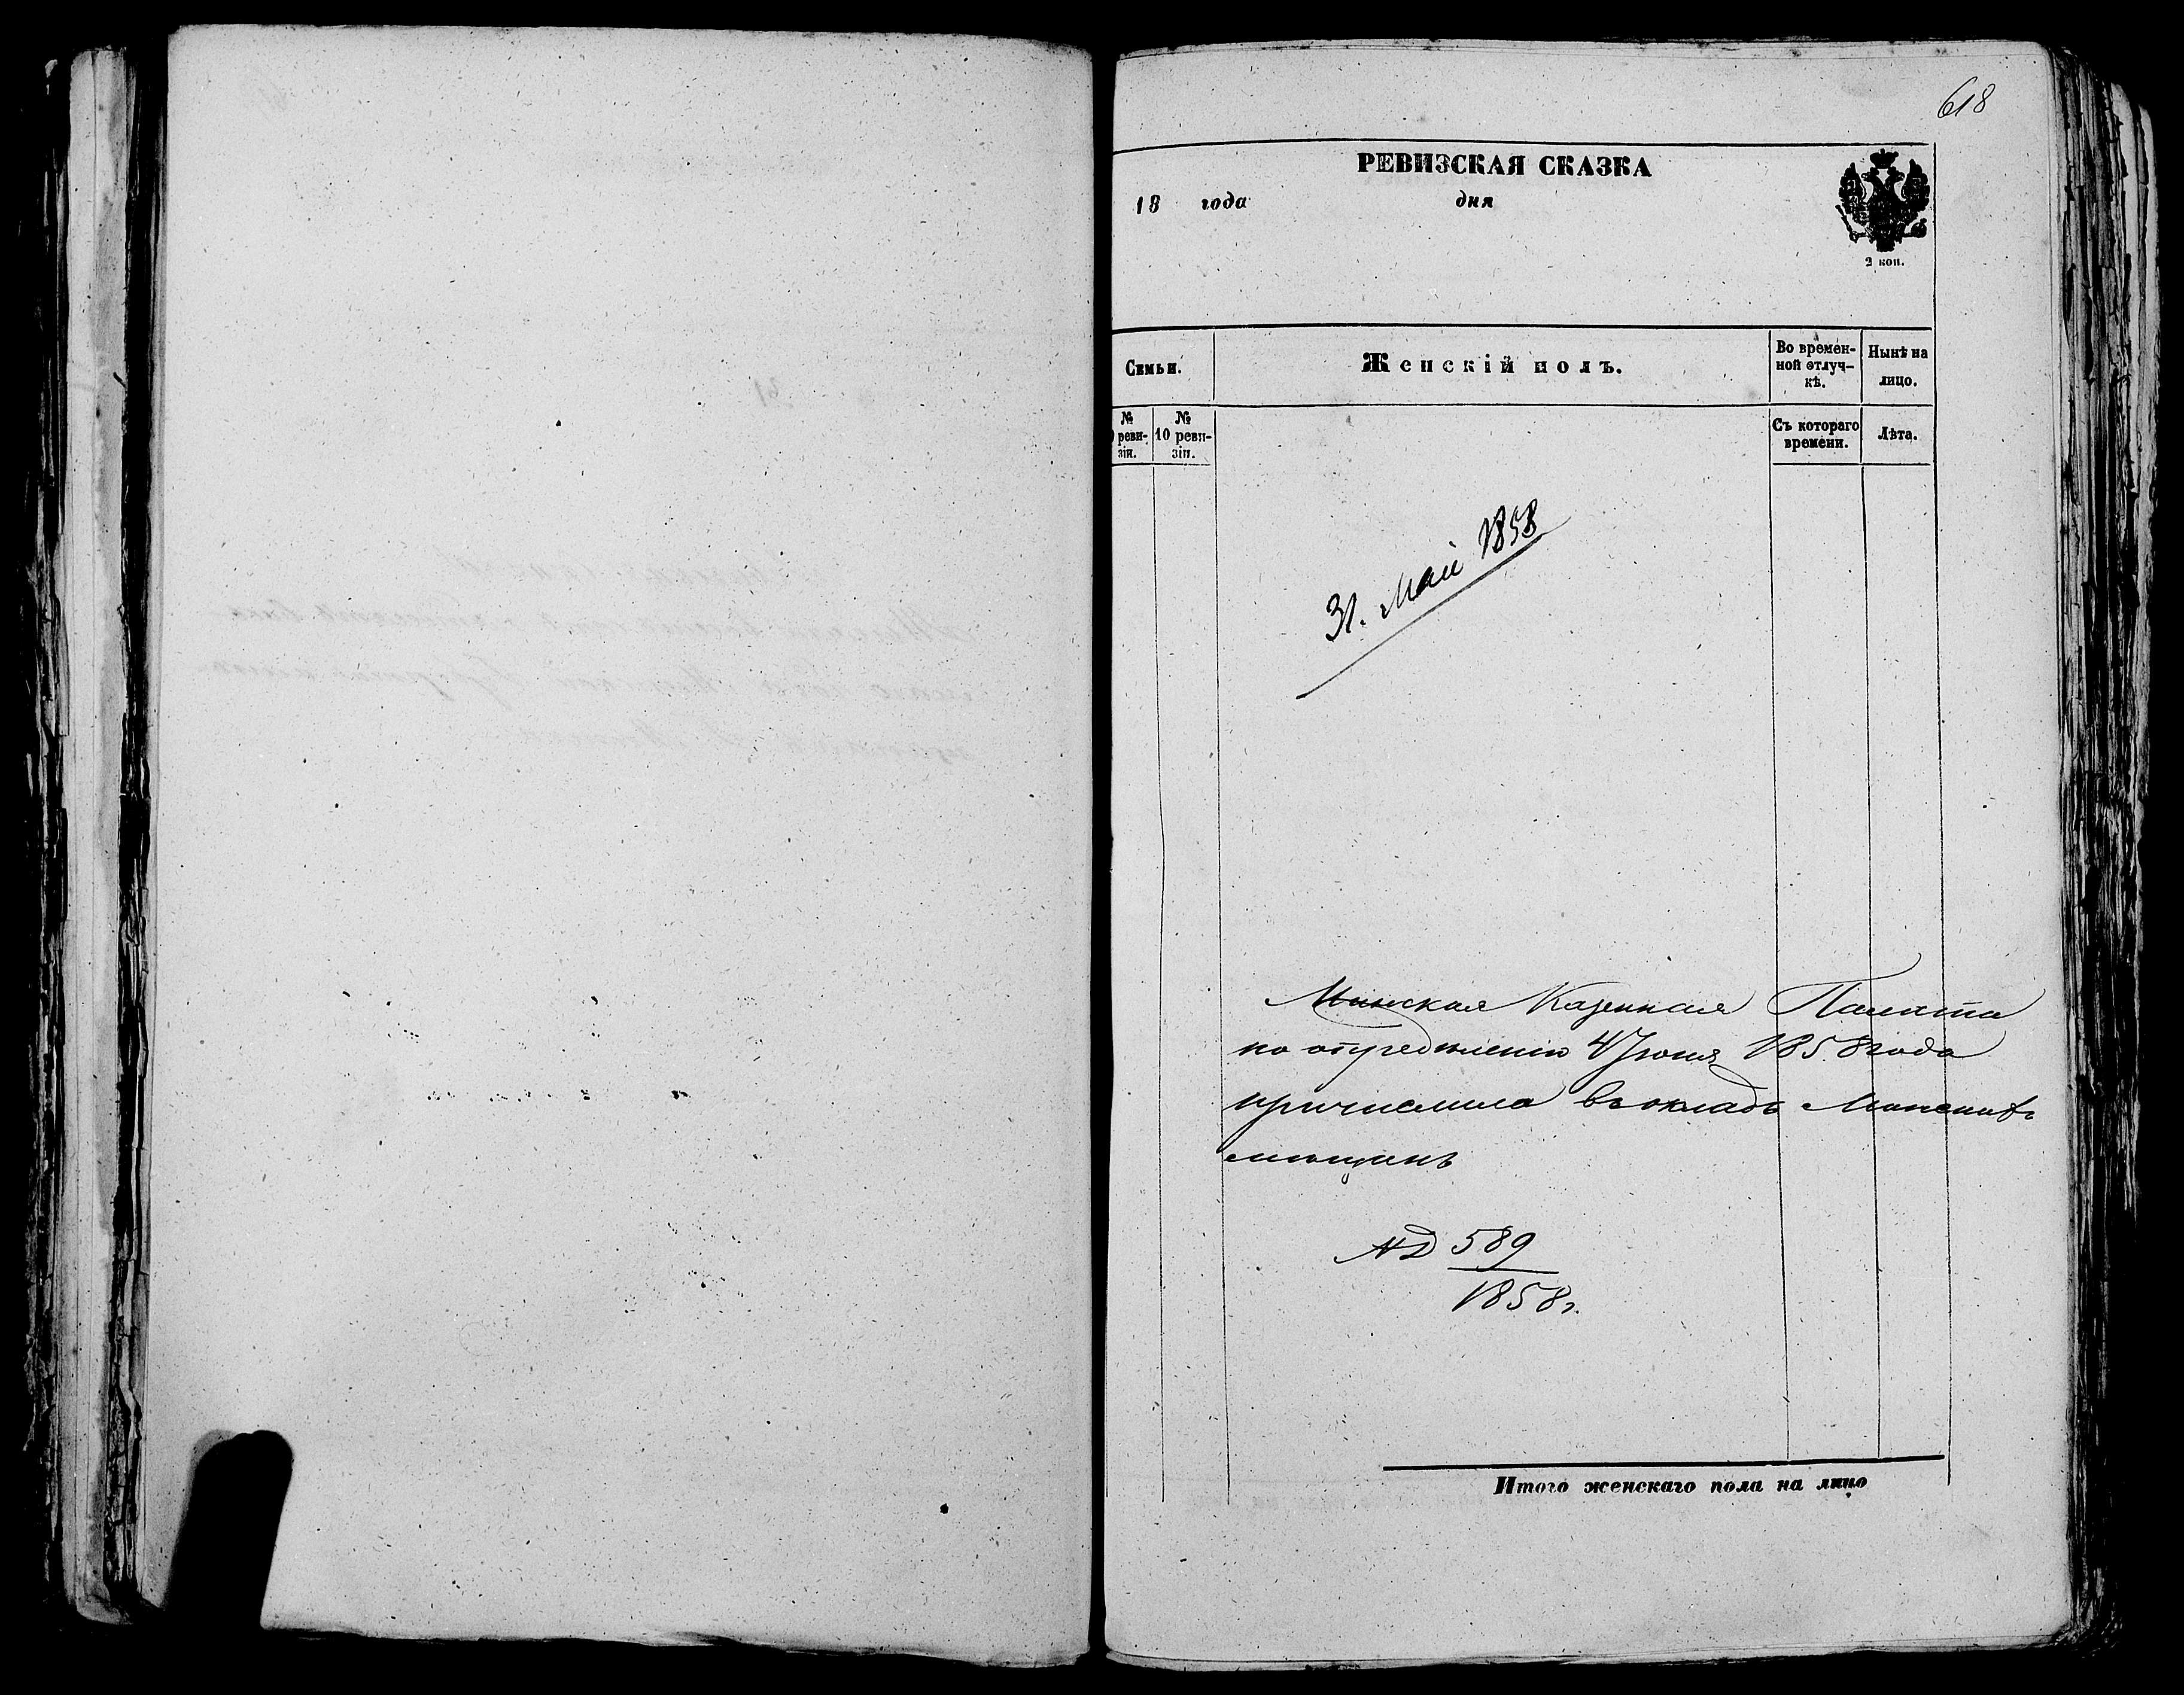 618
РЕВИЗСКАЯ СКАЗКА
18 года дня
2 коп.
Семьи.
Женскій полъ.
Во времен-
ной отлуч-
кѣ.
Нынѣ на
лицо.
№
реви-
зіи.
№
10 реви-
зіи.
Съ котораго
времени.
Лѣта.
31. Май 1858
Минская Казенная Палата
по опредѣленію 4 Іюня 1858 года
причислила въ окладъ Минскихъ
мѣщанъ
589
1858 г.
Итого женскаго пола на лицо